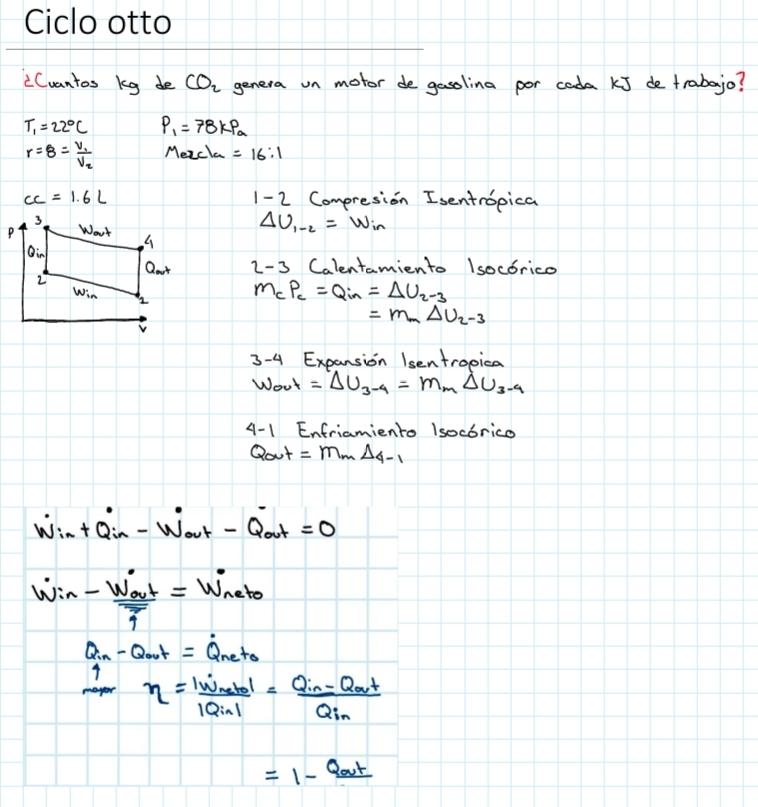 Ciclo otto
¿Cuantos kg de CO₂ genera un motor de gasolina por cada KJ de trabajo?
T₁ = 22°C P₁ = 78 kPa
r = 8 = V₁/V₂ Mezcla = 16:1
cc = 1.6 L
P 3 Wout 4
Qin Qout
2 Win 1
V
1-2 Compresión Isentrópica
ΔU₁₋₂ = Win
2-3 Calentamiento Isocórico
mc Pc = Qin = ΔU₂₋₃
= mm ΔU₂₋₃
3-4 Expansión Isentropica
Wout = ΔU₃₋₄ = mm ΔU₃₋₄
4-1 Enfriamiento Isocórico
Qout = mm Δ₄₋₁
Ẇin + Q̇in - Ẇout - Q̇out = 0
Ẇin - Ẇout = Ẇneto
Qin - Qout = Q̇neto
mayor η = |Ẇneto| / |Qin| = Qin - Qout / Qin
= 1 - Qout